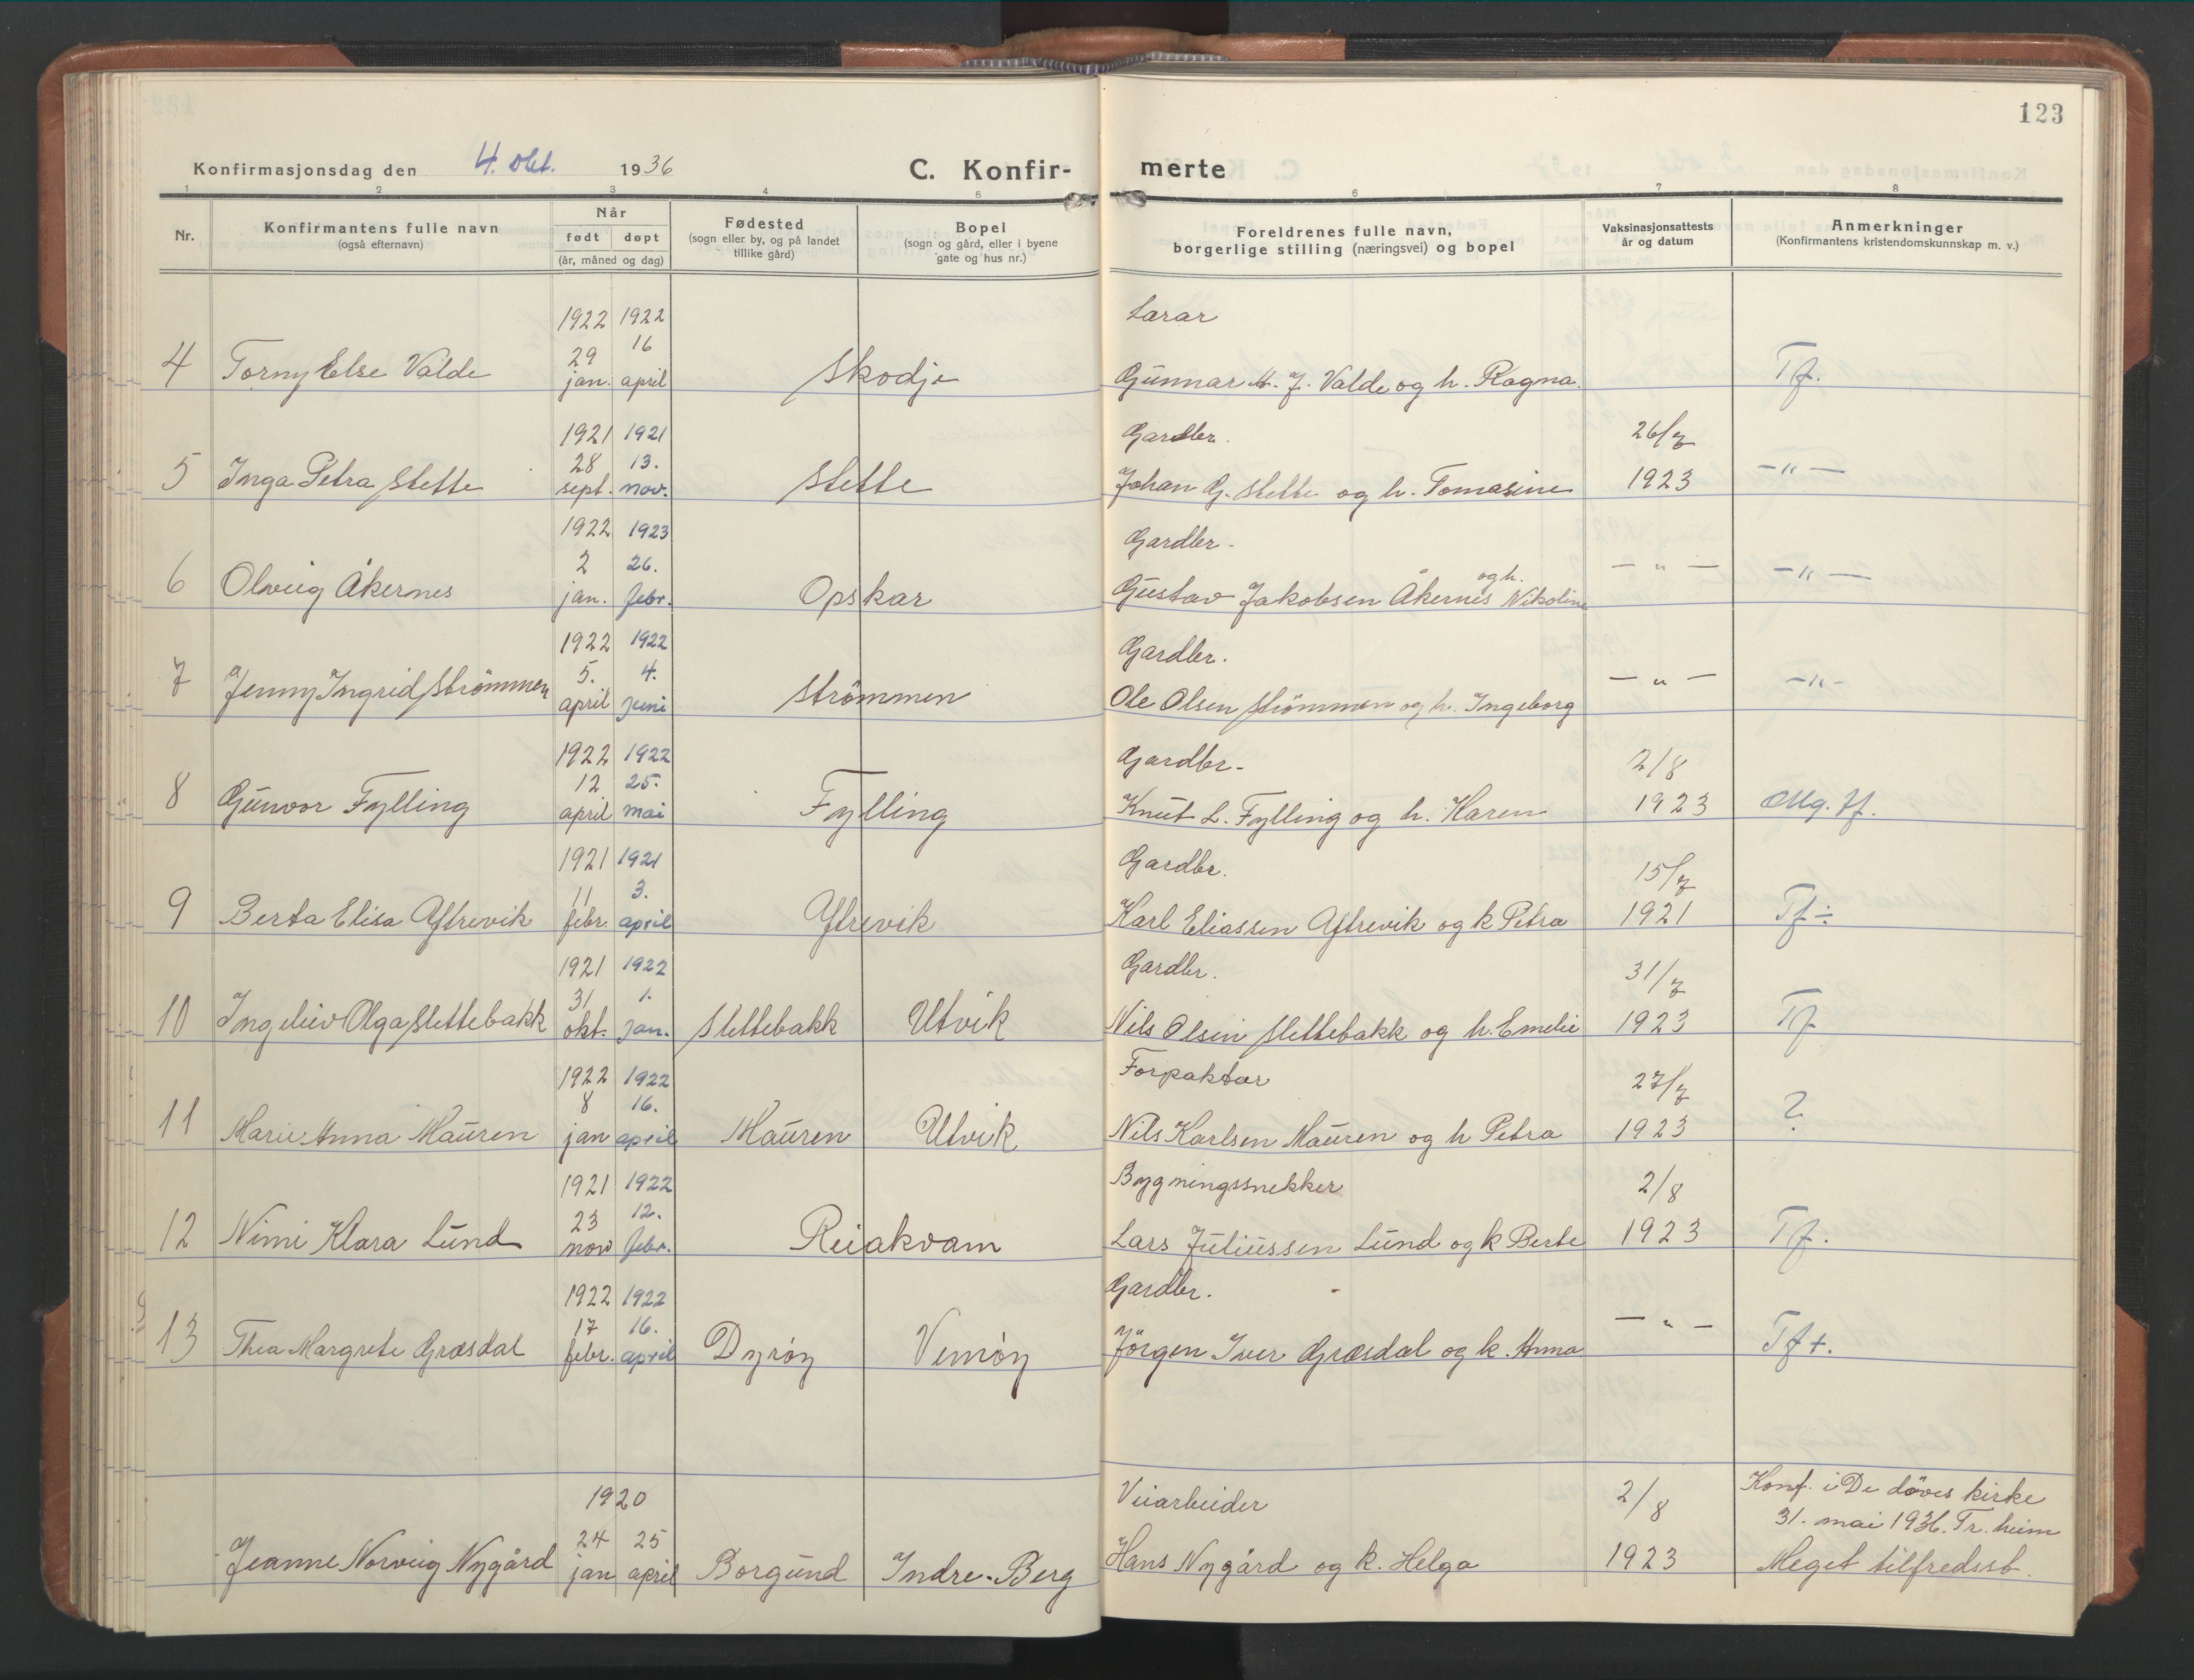 123
Konfirmasjonsdag den 4. okt. 1936
C. Konfir- merte
1 2 3 4 5 6 7 8
Nr.
Konfirmantens fulle navn
(også efternavn)
Når
født døpt
(år, måned og dag)
Fødested
(sogn eller by, og på landet
tillike gård)
Bopel
(sogn og gård, eller i byene
gate og hus nr.)
Foreldrenes fulle navn,
borgerlige stilling (næringsvei) og bopel
Vaksinasjonsattests
år og datum
Anmerkninger
(Konfirmantens kristendomskunnskap m. v.)
1922 1922 Lærar
29 16
4 Torny Else Valde jan. april Skodje Gunnar M. J. Valde og h. Ragna. Tf.
1921 1921 Gardbr. 26/7
28 13.
5 Inga Petra Slette sept. nov. Slette Johan G. Slette og h. Tomasine 1923 -"-
1922 1923 Gardbr.
2 26. og h.
6 Olveig Åkernes jan. febr. Opskar Gustav Jakobsen Åkernes Nikoline -"- -"-
1922 1922 Gardbr.
5. 4.
7 Jenny Ingrid Strömmen april juni Strömmen Ole Olsen Strömmen og h. Ingeborg -"- -"-
1922 1922 Gardbr. 2/8
12 25.
8 Gunvor Fylling april mai Fylling Knut L. Fylling og h. Karen 1923 Mg. tf.
1921 1921 Gardbr. 15/7
11 3.
9 Berta Elisa Yttrevik febr. april Ytrevik Karl Eliassen Yttrevik og k Petra 1921 Tf ÷
1921 1922 Gardbr. 31/7
31 1.
10 Ingeleiv Olga Slettebakk okt. jan. Slettebakk Utvik Nils Olsen Slettebakk og h. Emelie 1923 Tf
1922 1922 Forpaktar 27/7
8 16.
11 Marie Anna Mauren jan april Mauren Utvik Nils Karlsen Mauren og h Petra 1923 ?
1921 1922 Bygningssnekker 2/8
23 12.
12 Nimi Klara Lund nov febr. Reiakvam Lars Juliussen Lund og k Berte 1923 Tf.
1922 1922 Gardbr.
17 16.
13 Thea Margrete Græsdal febr. april Dyrøy Vemøy Jörgen Iver Græsdal og k. Anna -"- Tf+.
1920 Veiarbeider 2/8 Konf. i De döves kirke
24 25 31. mai 1936. Tr.heim
Jeanne Norveig Nygård jan april Borgund Indre-Berg Hans Nygård og k. Helga 1923 Meget tilfredsst.